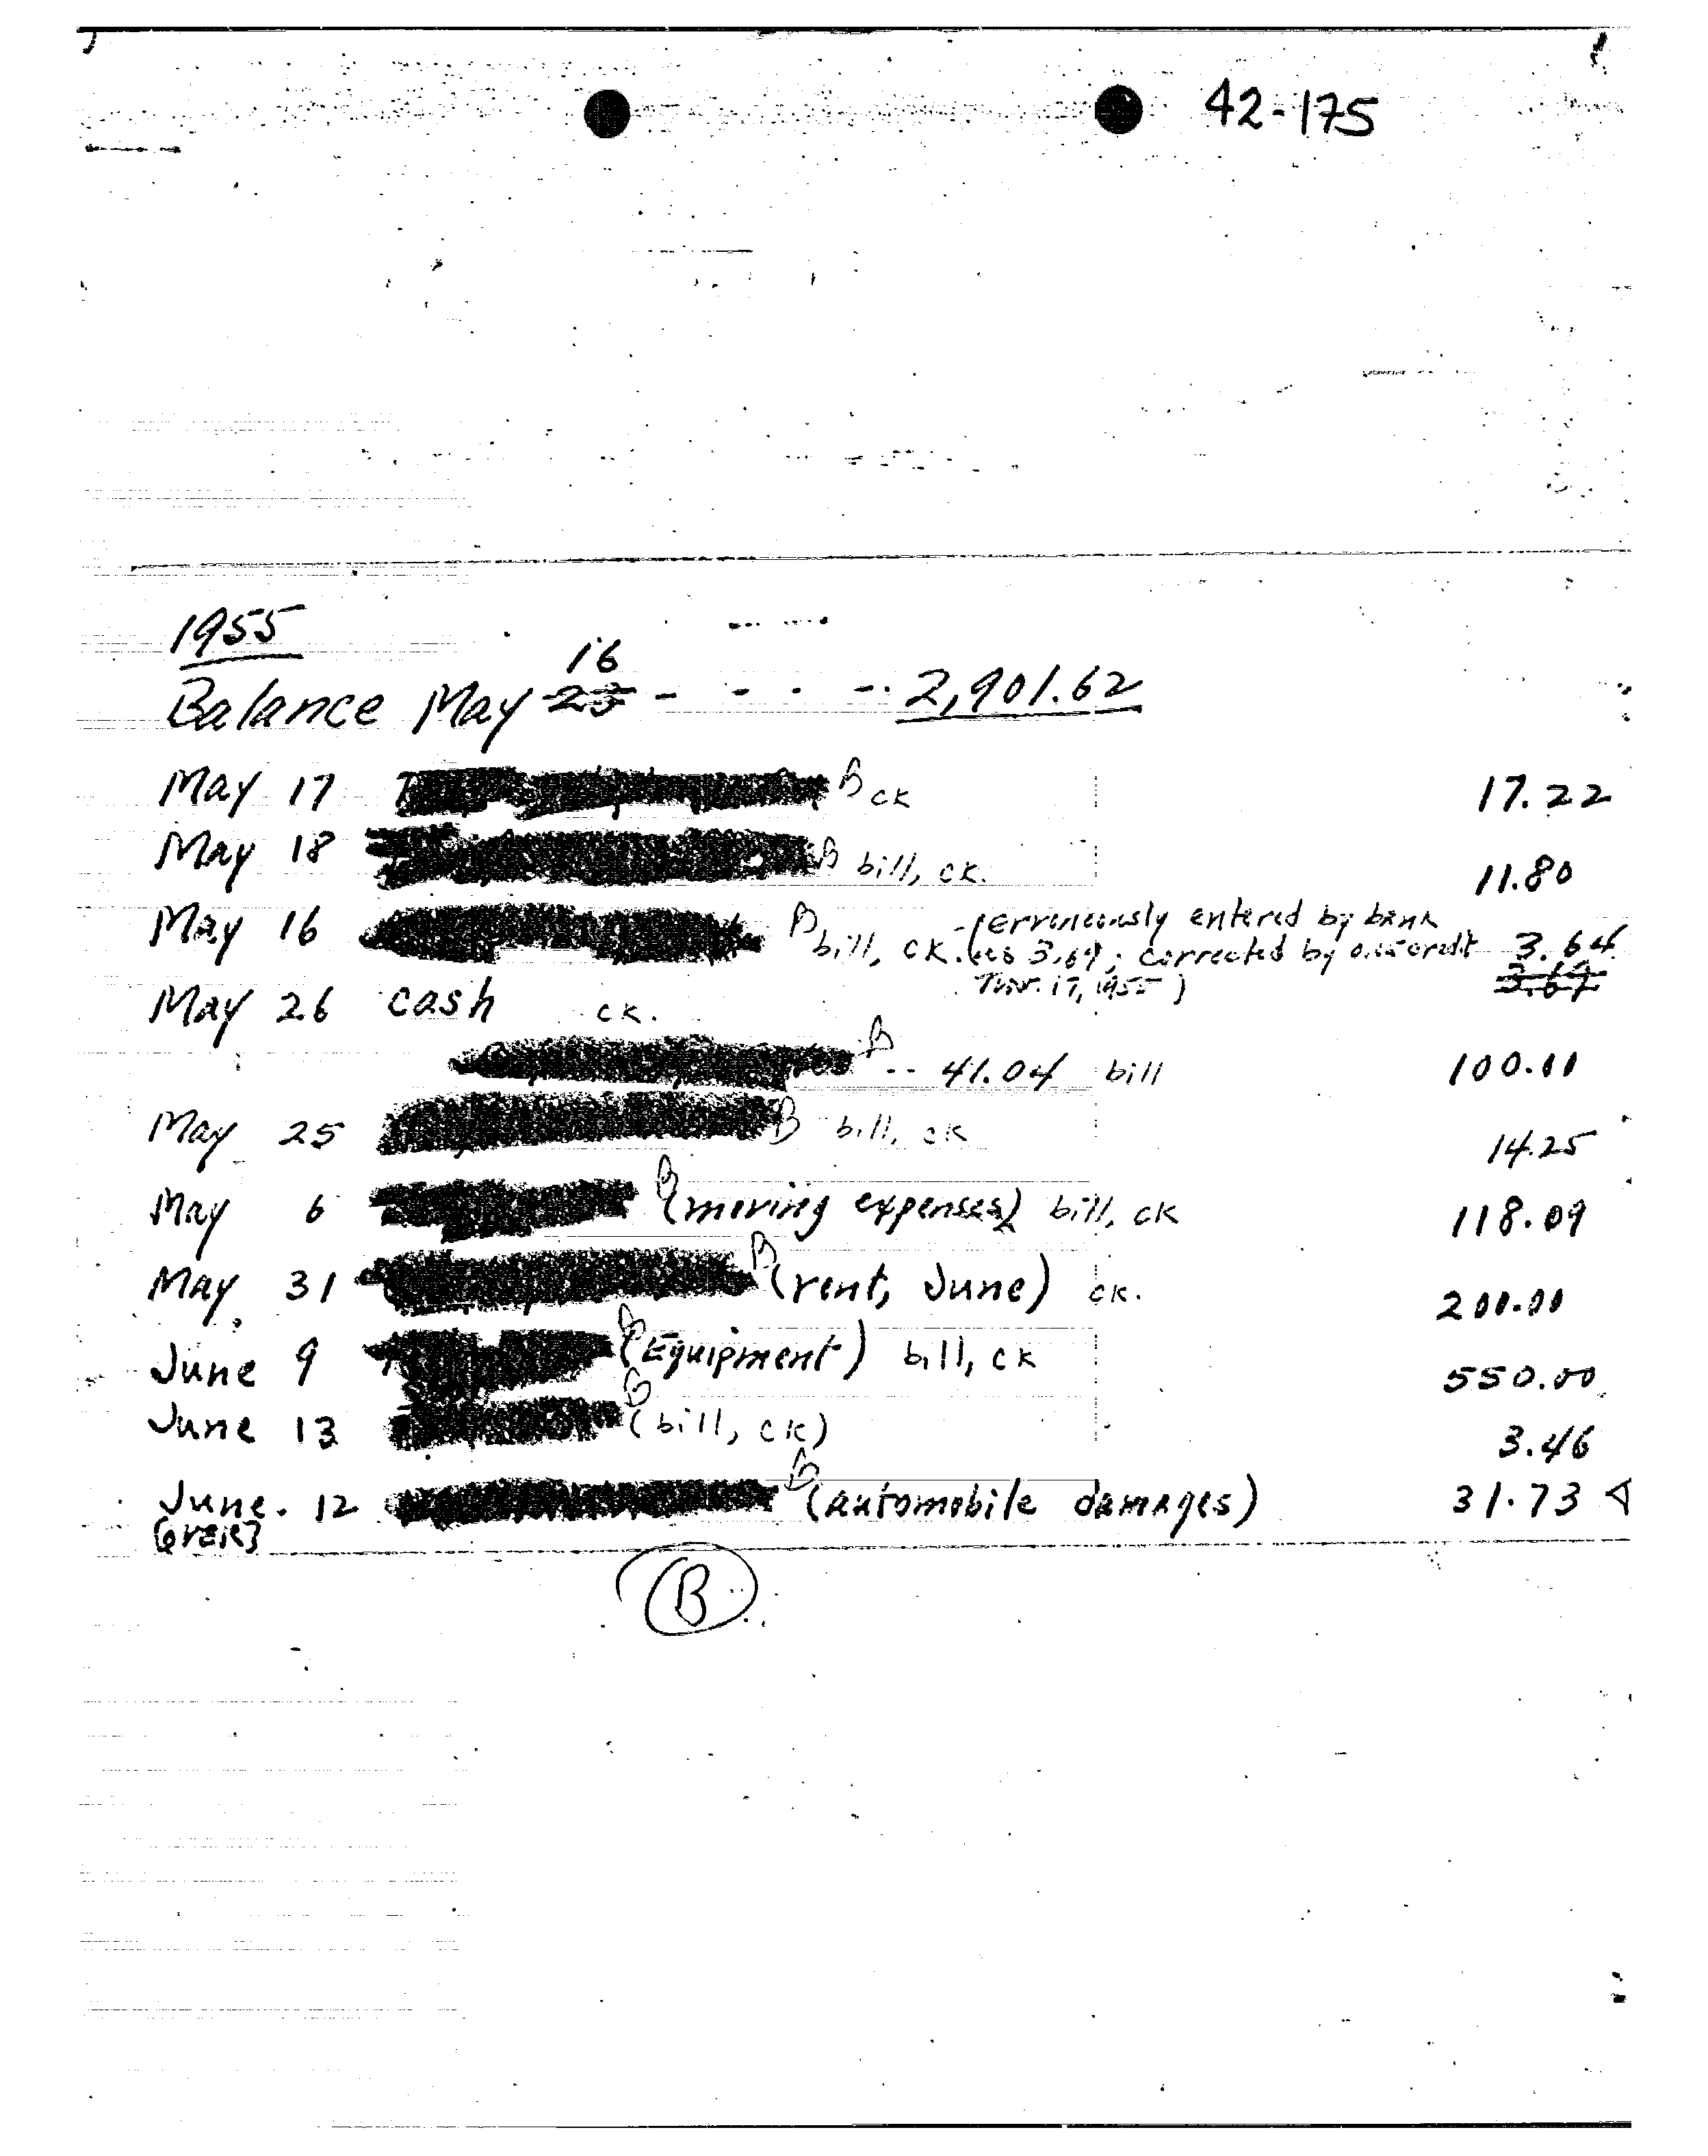 42-175
1955
Balance May 16 23 - - - - 2,901.62
May 17 B ck 17.22
May 18 B bill, ck. 11.80
May 16 B bill, ck. (erroneously entered by bank
as 3.69; corrected by credit 3.64
17, 1955) 3.69
May 26 cash ck.
B -- 41.04 bill 100.00
May 25 B bill, ck 14.25
May 6 B (moving expenses) bill, ck 118.09
May 31 B (rent, June) ck. 200.00
June 9 B (Equipment) bill, ck 550.00
June 13 B (bill, ck) 3.46
June. 12 B (automobile damages) 31.73
[OVER]
B